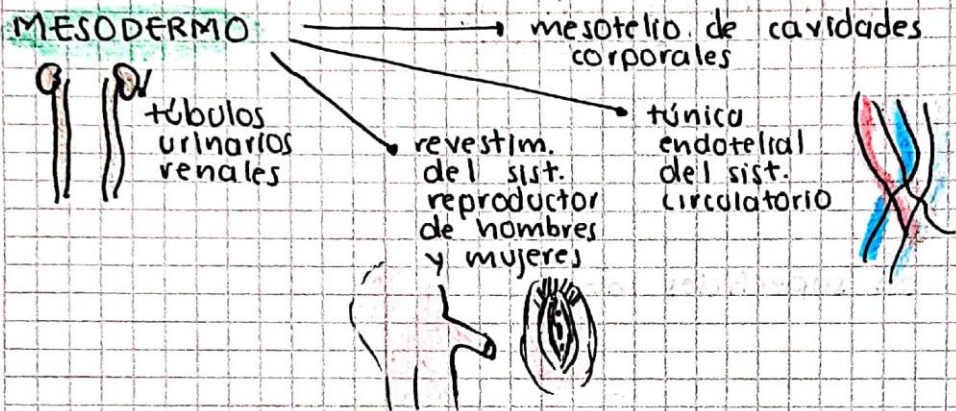 MESODERMO
mesotelio de cavidades
corporales
túbulos
urinarios
renales
revestim.
del sist.
reproductor
de hombres
y mujeres
túnica
endotelial
del sist.
circulatorio